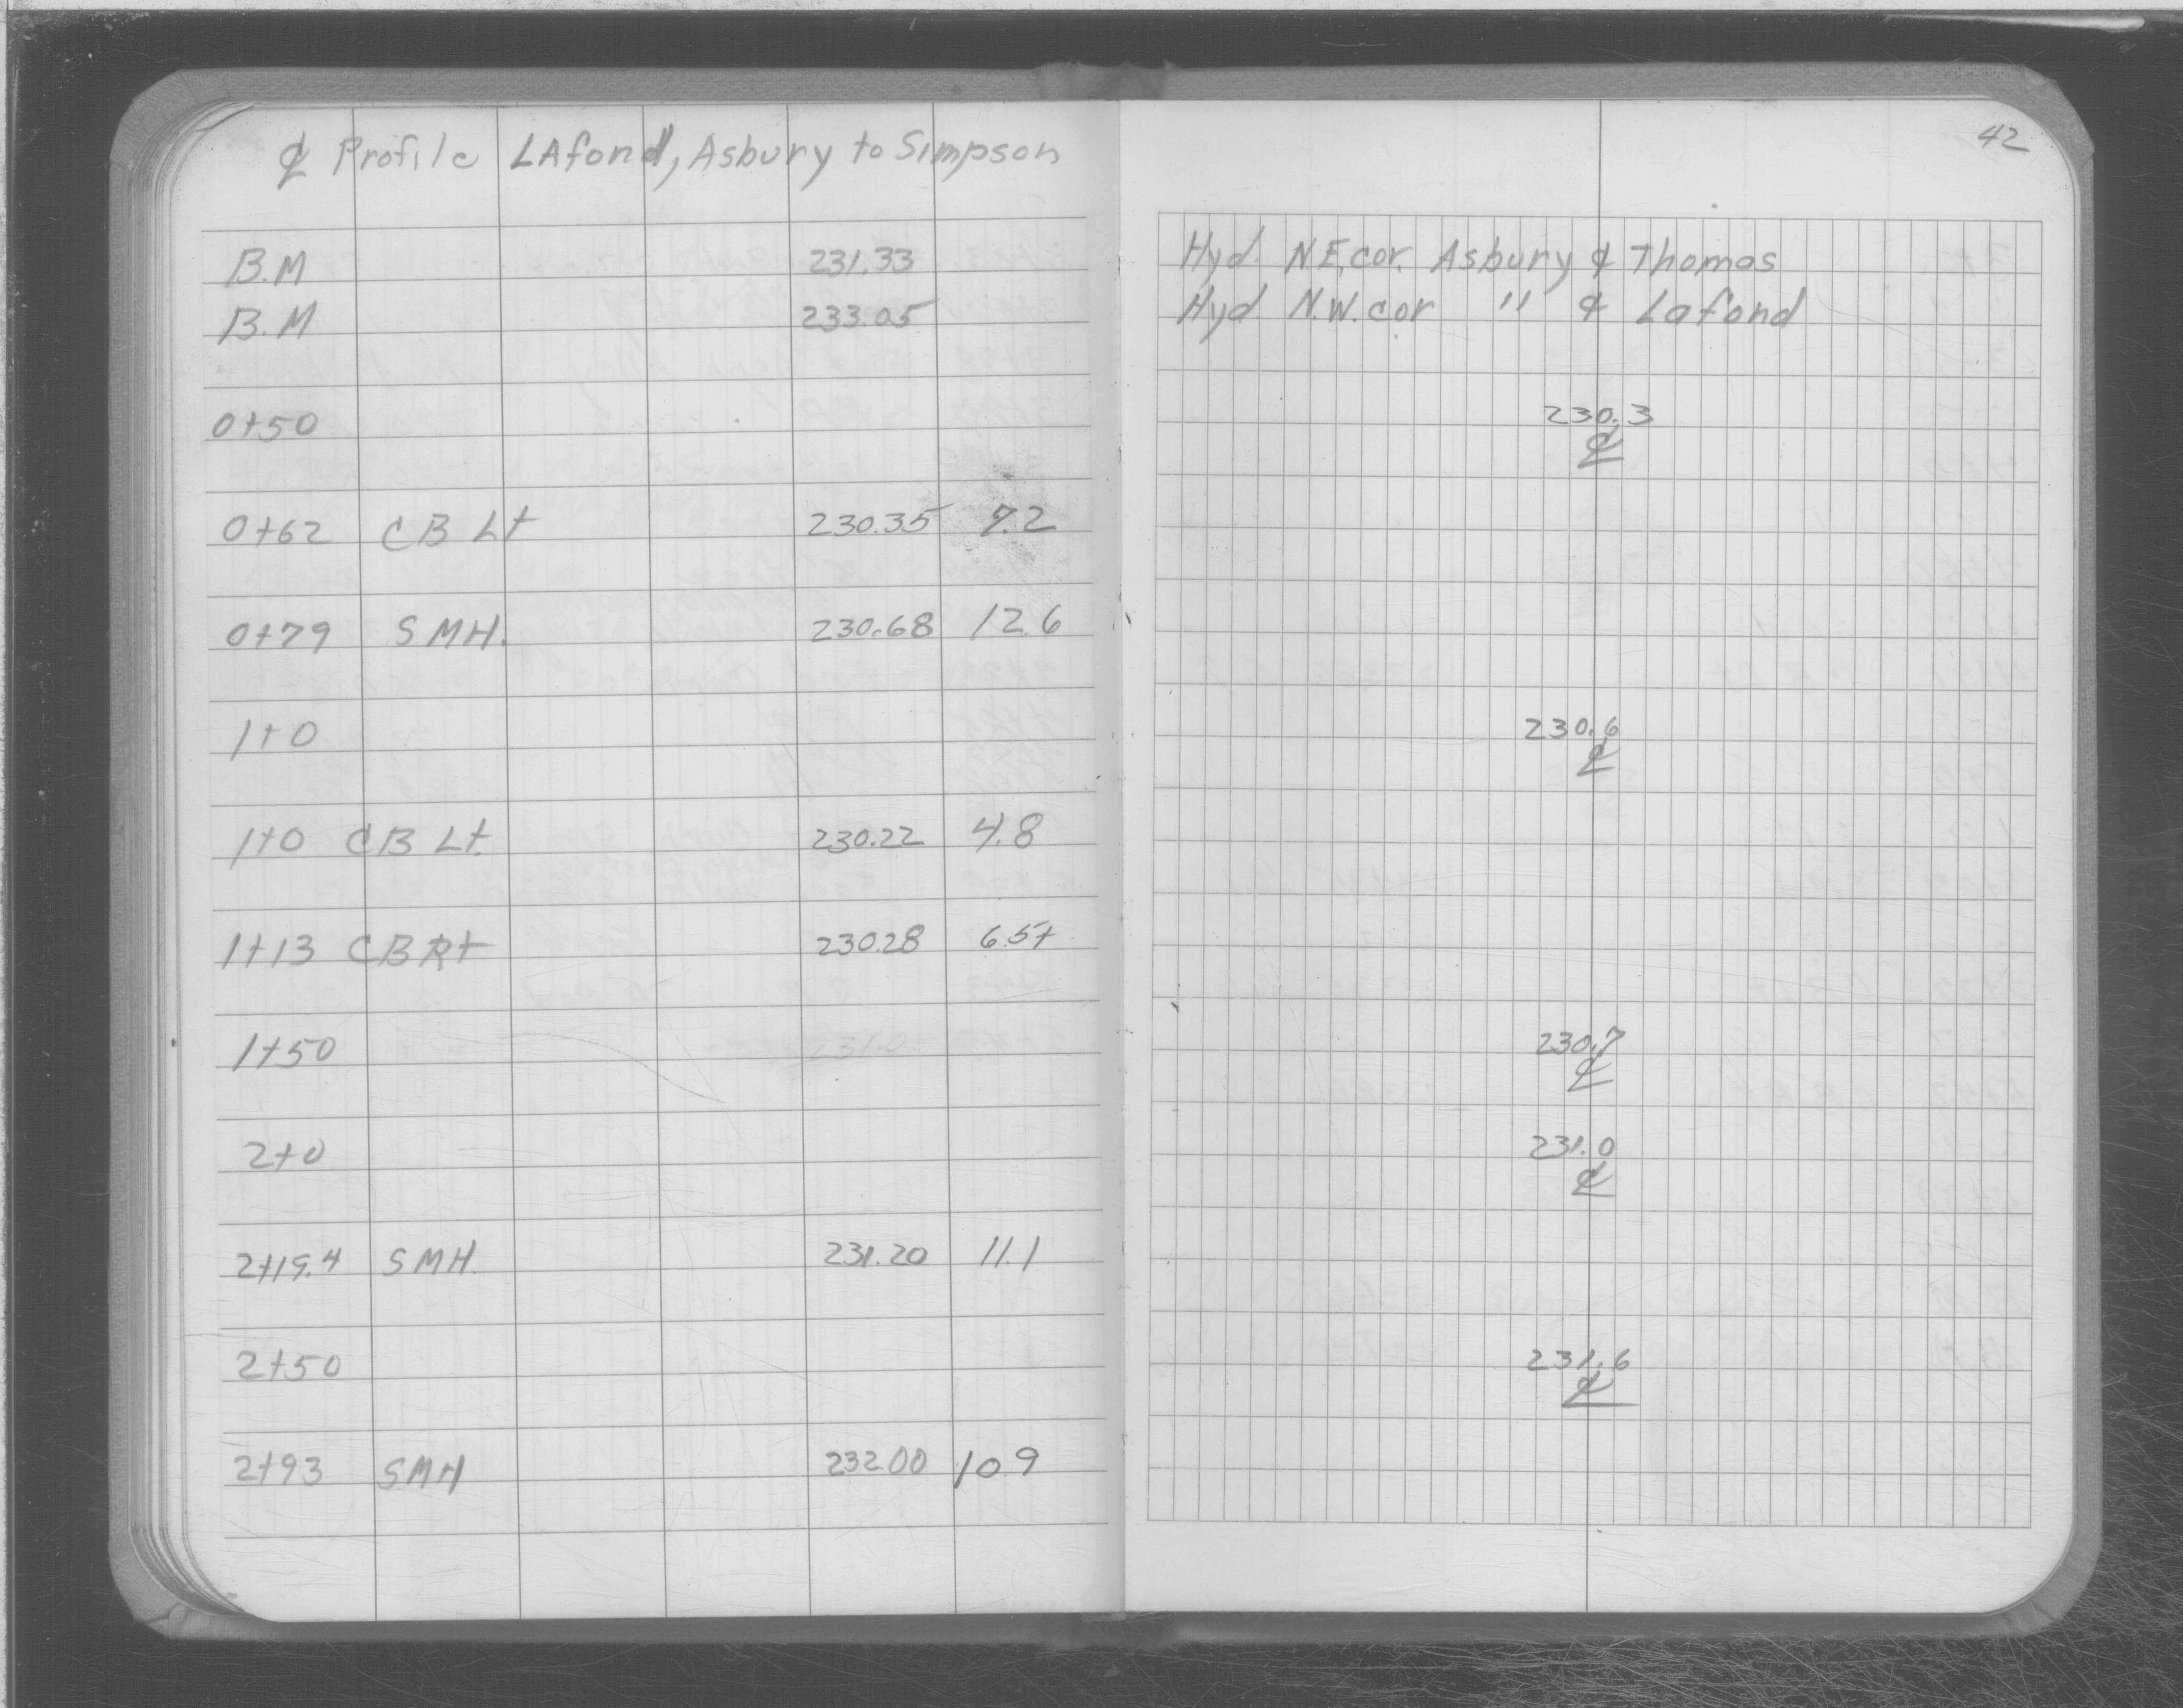 ℄ Profile LAfond, Asbury to Simpson
42
B.M 231.33 Hyd. N.E. cor. Asbury & Thomas
B.M 233.05 Hyd N.W. cor " & Lafond
0+50 230.3
℄
0+62 CB Lt 230.35 7.2
0+79 SMH. 230.68 12.6
1+0 230.6
℄
1+0 CB Lt. 230.22 4.8
1+13 CB Rt 230.28 6.5+
1+50 230.7
℄
2+0 231.0
℄
2+19.4 SMH. 231.20 11.1
2+50 231.6
℄
2+93 SMH 232.00 10.9